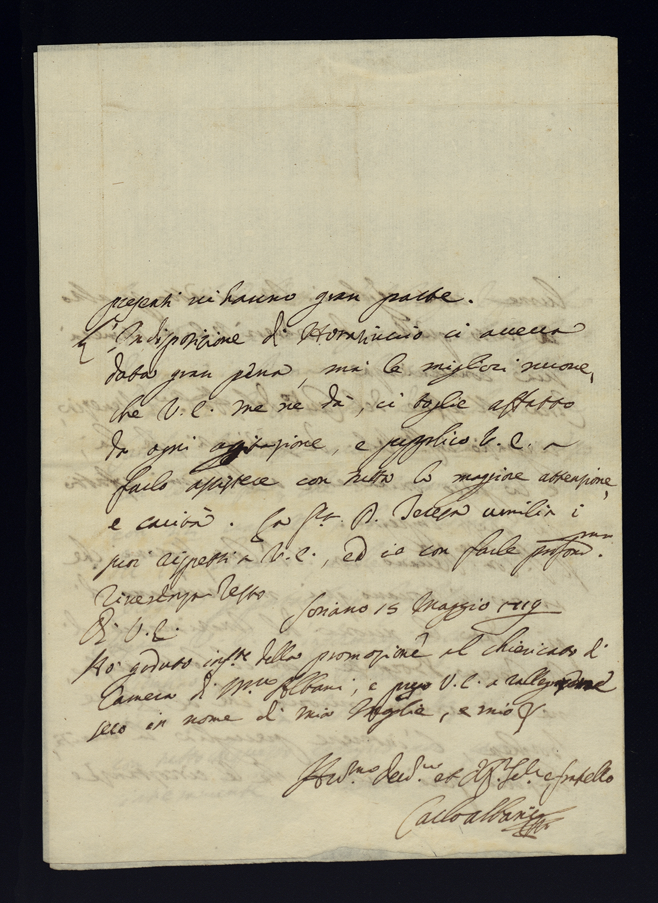 presenti vi hanno gran parte.
L'Indisposizione di Horatiuccio ci aveva
data gran pena, mà le migliori nuove,
che V. E. me ne dà, ci toglie affatto
da ogni agitazione, e supplico V. E. a
farlo assistere con tutta la maggiore attenzione,
e carità. La Sig.ra D. Teresa umilia i
suoi rispetti a V. E., ed io con farle profond.ma
riverenza resto
Di V. E. Soriano 15 Maggio 1719
Hò goduto inf.te della promozione al chiericato di
Camera di Albani, e prego V. E. a rallegrarsene
seco in nome di mia Moglie, e mio
Hum.mo Dev.mo et fratello
Carlo Albani